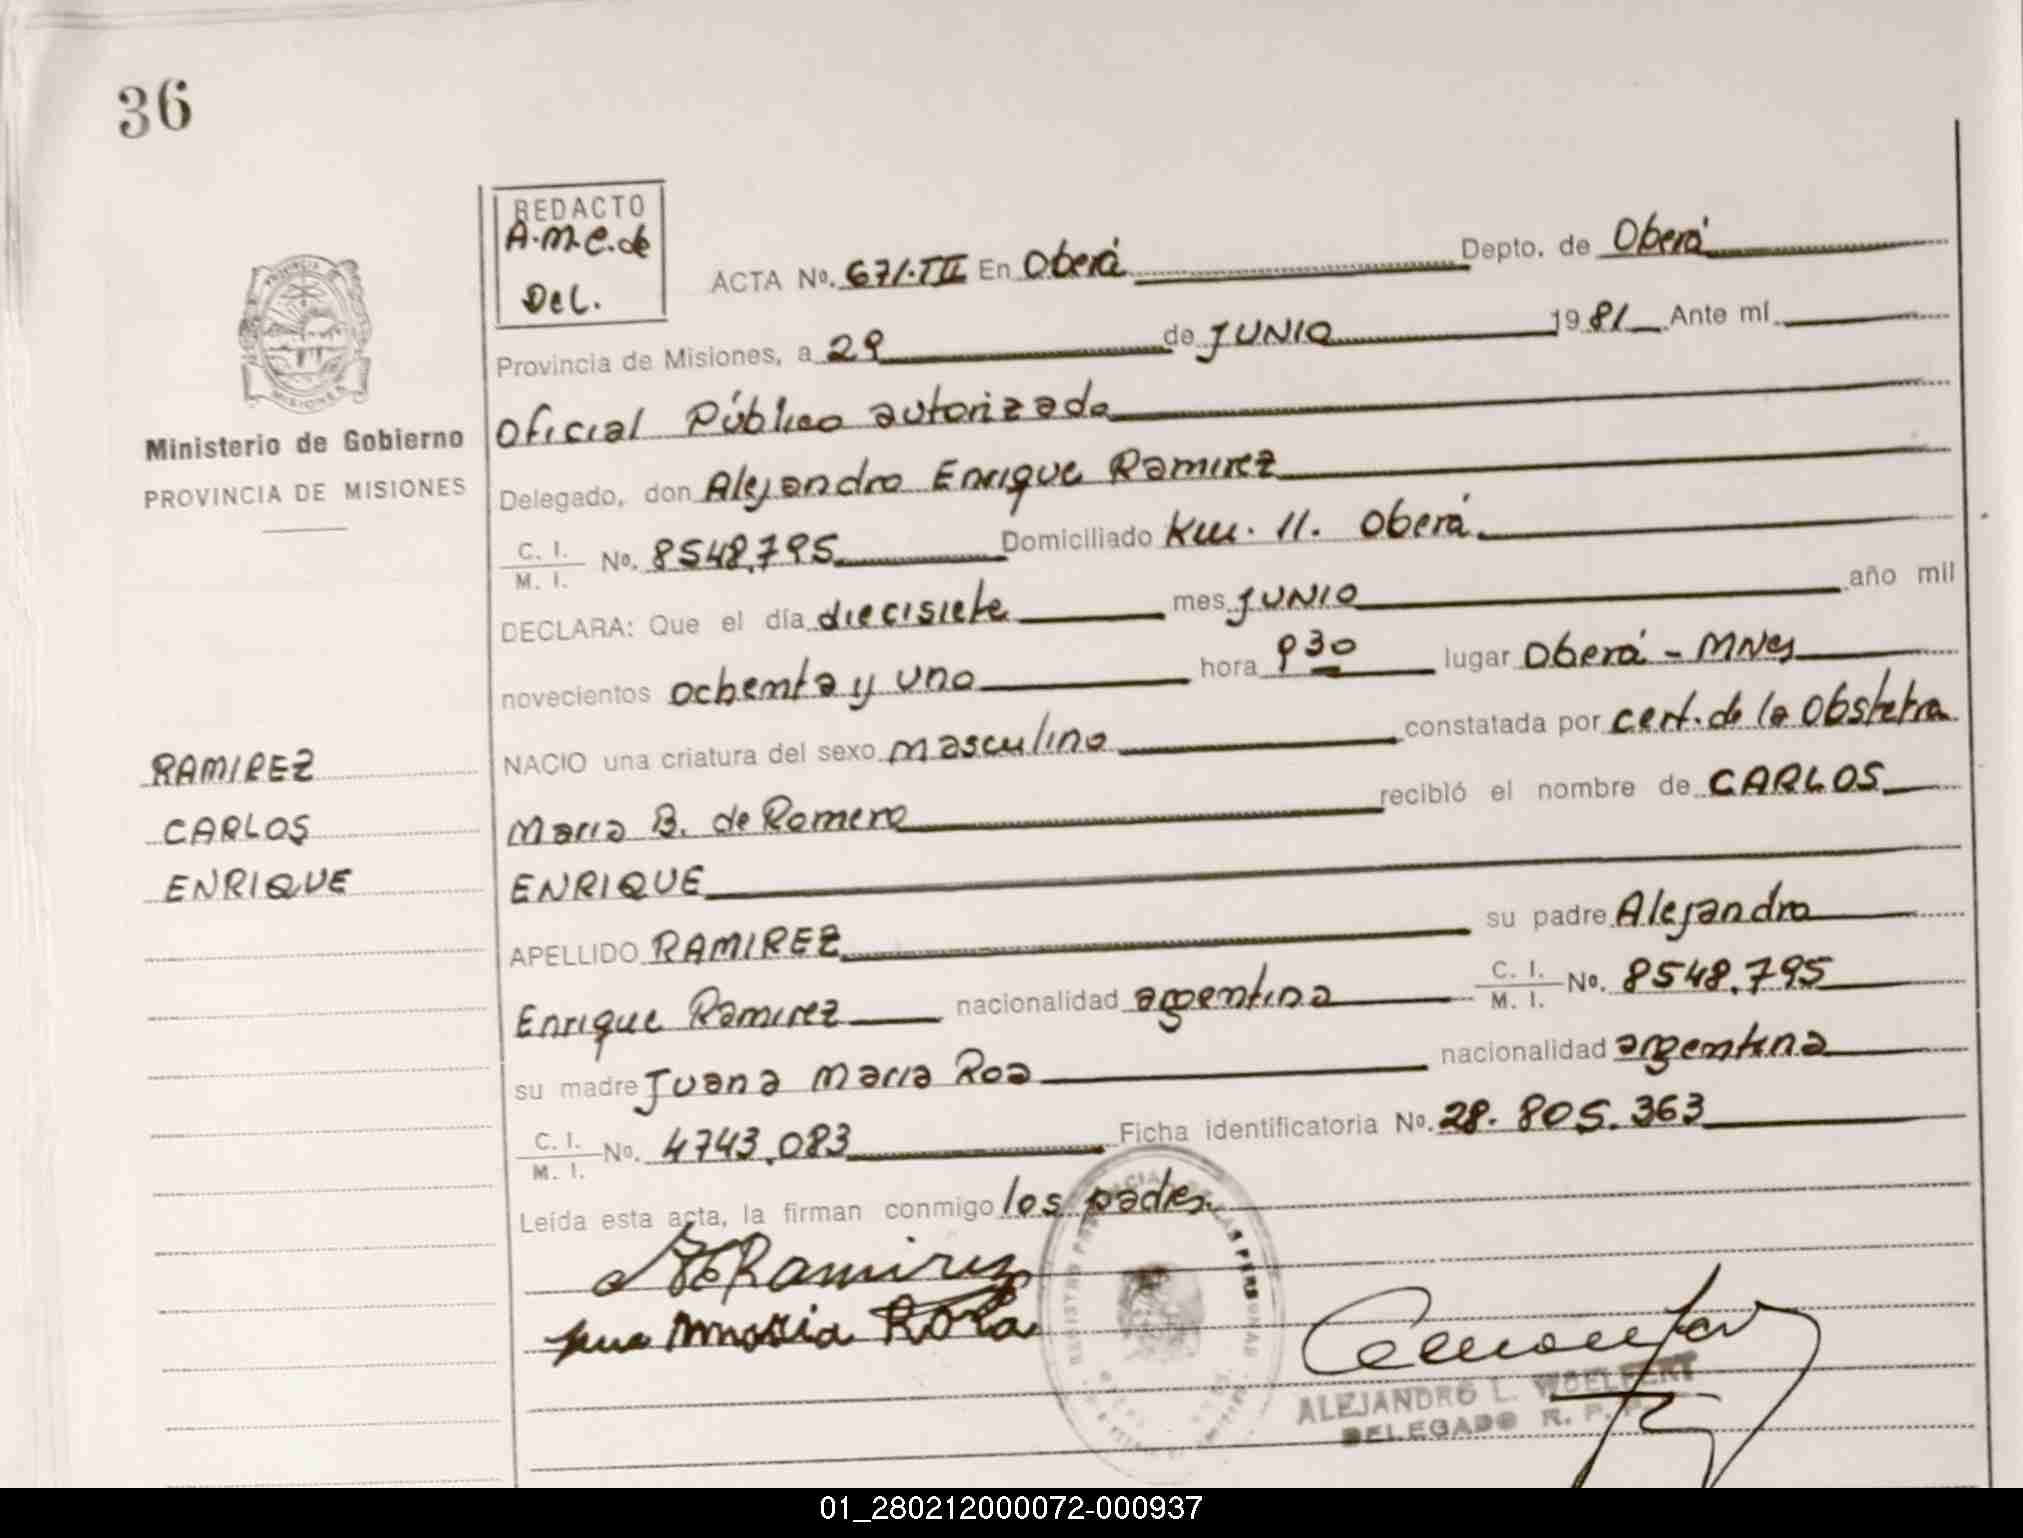 36
REDACTO
A.M.C. de
Del.
ACTA No. 671-III En Oberá Depto. de Oberá
Provincia de Misiones, a 29 de JUNIO 1981 Ante mí
Oficial Público autorizado
Delegado, don Alejandro Enrique Ramirez
C. I.
M. I. No. 8548.795 Domiciliado Km. 11. Oberá
DECLARA: Que el día diecisiete mes JUNIO año mil
novecientos ochenta y uno hora 930 lugar Oberá - MNes
NACIO una criatura del sexo masculino constatada por cert. de la Obstetra
Maria B. de Romero recibió el nombre de CARLOS
ENRIQUE
APELLIDO RAMIREZ su padre Alejandro
Enrique Ramirez nacionalidad argentina C. I.
M. I. No. 8548.795
su madre Juana Maria Roa nacionalidad argentina
C. I.
M. I. No. 4743.083 Ficha identificatoria No. 28.805.363
Leída esta acta, la firman conmigo los padres.
Ramirez
PROVINCIA
MISIONES
Ministerio de Gobierno
PROVINCIA DE MISIONES
RAMIREZ
CARLOS
ENRIQUE
REGISTRO LAS PERSONAS
ALEJANDRO L. WOELFERT
DELEGADO R. P. P.
01_280212000072-000937